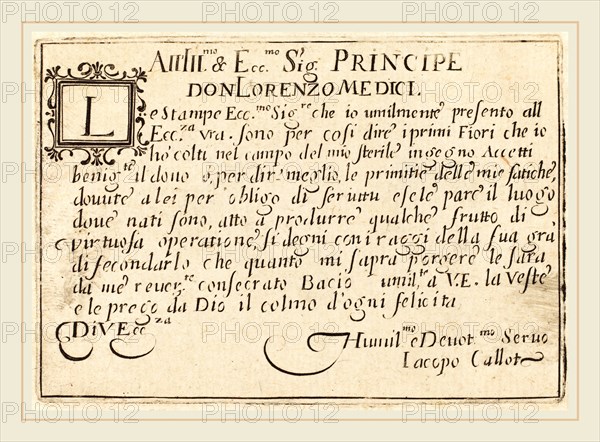 All Ill.mo & Ecc.mo Sig. PRINCIPE
DON LORENZO MEDICI.
Le Stampe Ecc.mo Sig.re che io umilmente presento all
Ecc.za vra. sono per cosi dire i primi Fiori che io
hò colti nel campo del mio sterile ingegno Accetti
benig.te il dono ò, per dir meglio, le primitie delle mie fatiche,
dovute a lei per obligo di seruitu e se le pare il luogo
dove nati sono, atto a produrre qualche frutto di
virtuosa operatione, si degni con i raggi della sua gra.
di fecondarlo che quanto mi sapra porgere le sara
da me rever.te consecrato Bacio umil.te a V.E. la veste
e le prego da Dio il colmo d'ogni felicita
Di V. Ecc.za
Humil.mo e Devot.mo Servo
Iacopo Callot